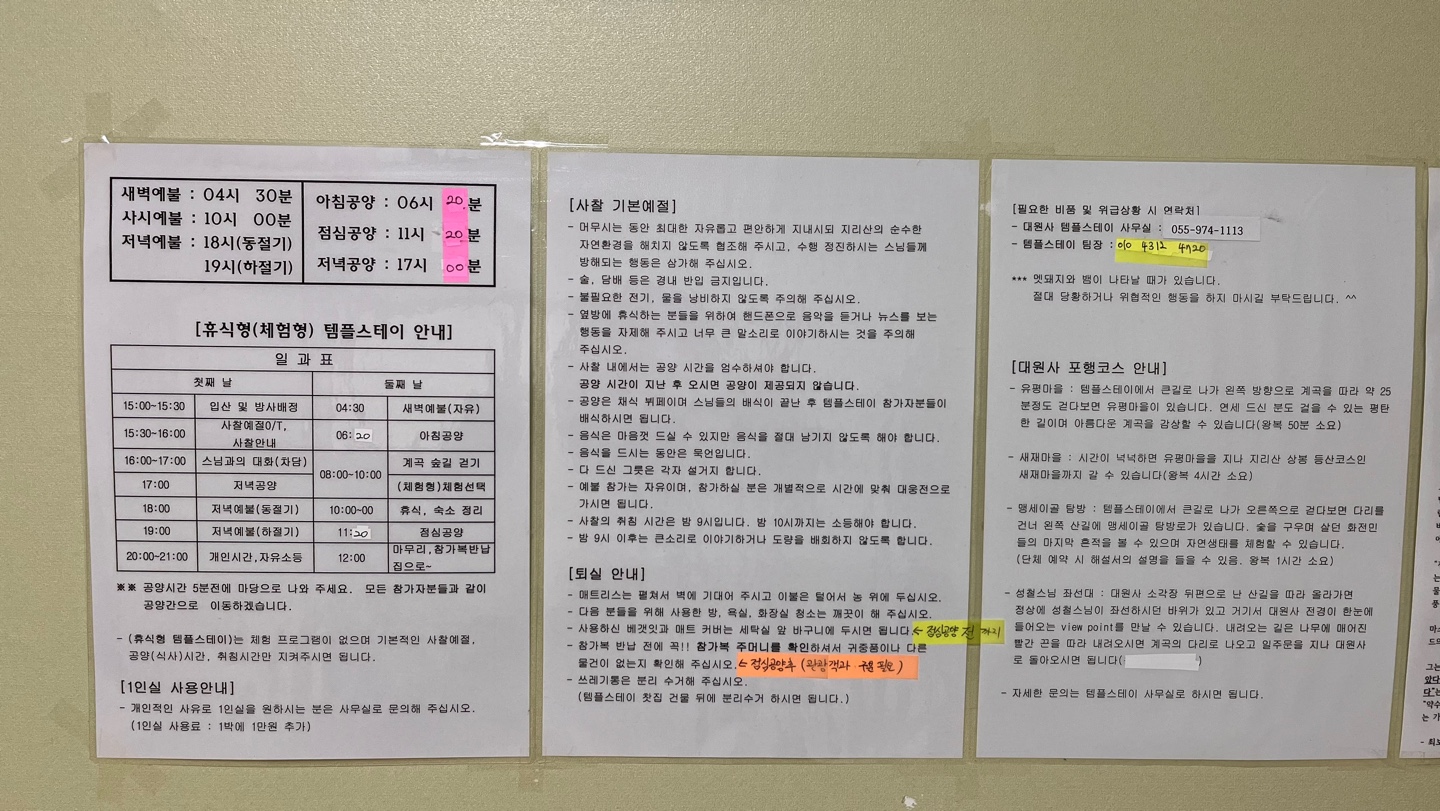 새벽예불 : 04시 30분
사시예불 : 10시 00분
저녁예불 : 18시(동절기)
19시(하절기)
아침공양 : 06시 20분
점심공양 : 11시 20분
저녁공양 : 17시 00분
[휴식형(체험형) 템플스테이 안내]
일 과 표
첫째 날 둘째 날
15:00~15:30 입산 및 방사배정 04:30 새벽예불(자유)
15:30~16:00 사찰예절O/T, 사찰안내 06:20 아침공양
16:00~17:00 스님과의 대화(차담) 08:00~10:00 계곡 숲길 걷기
17:00 저녁공양 (체험형)체험선택
18:00 저녁예불(동절기) 10:00~00 휴식, 숙소 정리
19:00 저녁예불(하절기) 11:20 점심공양
20:00~21:00 개인시간,자유소등 12:00 마무리,참가복반납 집으로~
※※ 공양시간 5분전에 마당으로 나와 주세요. 모든 참가자분들과 같이
공양간으로 이동하겠습니다.
- (휴식형 템플스테이)는 체험 프로그램이 없으며 기본적인 사찰예절,
공양(식사)시간, 취침시간만 지켜주시면 됩니다.
[1인실 사용안내]
- 개인적인 사유로 1인실을 원하시는 분은 사무실로 문의해 주십시오.
(1인실 사용료 : 1박에 1만원 추가)
[사찰 기본예절]
- 머무시는 동안 최대한 자유롭고 편안하게 지내시되 지리산의 순수한
자연환경을 해치지 않도록 협조해 주시고, 수행 정진하시는 스님들께
방해되는 행동은 삼가해 주십시오.
- 술, 담배 등은 경내 반입 금지입니다.
- 불필요한 전기, 물을 낭비하지 않도록 주의해 주십시오.
- 옆방에 휴식하는 분들을 위하여 핸드폰으로 음악을 듣거나 뉴스를 보는
행동을 자제해 주시고 너무 큰 말소리로 이야기하시는 것을 주의해
주십시오.
- 사찰 내에서는 공양 시간을 엄수하셔야 합니다.
공양 시간이 지난 후 오시면 공양이 제공되지 않습니다.
- 공양은 채식 뷔페이며 스님들의 배식이 끝난 후 템플스테이 참가자분들이
배식하시면 됩니다.
- 음식은 마음껏 드실 수 있지만 음식을 절대 남기지 않도록 해야 합니다.
- 음식을 드시는 동안은 묵언입니다.
- 다 드신 그릇은 각자 설거지 합니다.
- 예불 참가는 자유이며, 참가하실 분은 개별적으로 시간에 맞춰 대웅전으로
가시면 됩니다.
- 사찰의 취침 시간은 밤 9시입니다. 밤 10시까지는 소등해야 합니다.
- 밤 9시 이후는 큰소리로 이야기하거나 도량을 배회하지 않도록 합니다.
[퇴실 안내]
- 매트리스는 펼쳐서 벽에 기대어 주시고 이불은 털어서 농 위에 두십시오.
- 다음 분들을 위해 사용한 방, 욕실, 화장실 청소는 깨끗이 해 주십시오.
- 사용하신 베갯잇과 매트 커버는 세탁실 앞 바구니에 두시면 됩니다. ← 점심공양 전 까지
- 참가복 반납 전에 꼭!! 참가복 주머니를 확인하셔서 귀중품이나 다른
물건이 없는지 확인해 주십시오. ← 점심공양후 (관광객과 구분 필요)
- 쓰레기통은 분리 수거해 주십시오.
(템플스테이 찻집 건물 뒤에 분리수거 하시면 됩니다.)
[필요한 비품 및 위급상황 시 연락처]
- 대원사 템플스테이 사무실 : 055-974-1113
- 템플스테이 팀장 : 010 4312 4720
*** 멧돼지와 뱀이 나타날 때가 있습니다.
절대 당황하거나 위협적인 행동을 하지 마시길 부탁드립니다. ^^
[대원사 포행코스 안내]
- 유평마을 : 템플스테이에서 큰길로 나가 왼쪽 방향으로 계곡을 따라 약 25
분정도 걷다보면 유평마을이 있습니다. 연세 드신 분도 걸을 수 있는 평탄
한 길이며 아름다운 계곡을 감상할 수 있습니다(왕복 50분 소요)
- 새재마을 : 시간이 넉넉하면 유평마을을 지나 지리산 상봉 등산코스인
새재마을까지 갈 수 있습니다(왕복 4시간 소요)
- 맹세이골 탐방 : 템플스테이에서 큰길로 나가 오른쪽으로 걷다보면 다리를
건너 왼쪽 산길에 맹세이골 탐방로가 있습니다. 숯을 구우며 살던 화전민
들의 마지막 흔적을 볼 수 있으며 자연생태를 체험할 수 있습니다.
(단체 예약 시 해설서의 설명을 들을 수 있음. 왕복 1시간 소요)
- 성철스님 좌선대 : 대원사 소각장 뒤편으로 난 산길을 따라 올라가면
정상에 성철스님이 좌선하시던 바위가 있고 거기서 대원사 전경이 한눈에
들어오는 view point를 만날 수 있습니다. 내려오는 길은 나무에 매어진
빨간 끈을 따라 내려오시면 계곡의 다리로 나오고 일주문을 지나 대원사
로 돌아오시면 됩니다(
- 자세한 문의는 템플스테이 사무실로 하시면 됩니다.